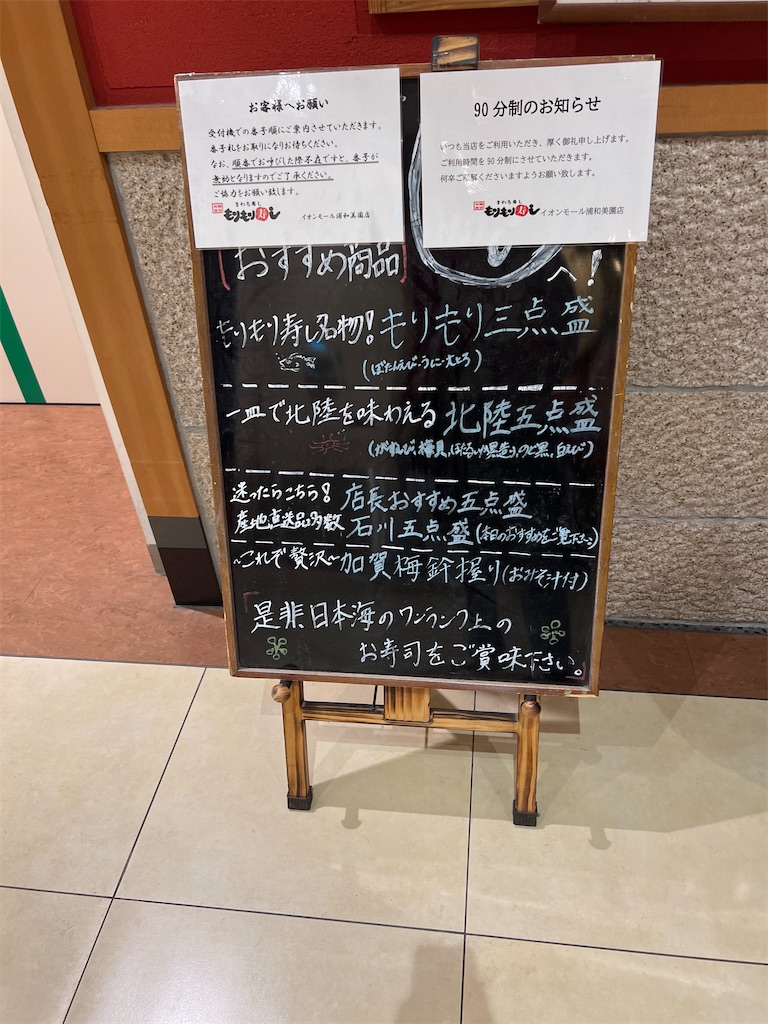 お客様へお願い
受付機での番号順にご案内させていただきます。
番号札をお取りになりお待ちください。
なお、順番でお呼びした際不在ですと、番号が
無効となりますのでご了承ください。
ご協力をお願い致します。
まわる寿し
もりもり寿し イオンモール浦和美園店
90分制のお知らせ
いつも当店をご利用いただき、厚く御礼申し上げます。
ご利用時間を90分制にさせていただきます。
何卒ご理解くださいますようお願い致します。
まわる寿し
もりもり寿し イオンモール浦和美園店
おすすめ商品
へ!
もりもり寿し名物!もりもり三点盛
(ぼたんえび・うに・大とろ)
一皿で北陸を味わえる 北陸五点盛
(がすえび、梅貝、ほたるいか黒造り、のど黒、白えび)
迷ったらこちら! 店長おすすめ五点盛
産地直送品多数 石川五点盛(本日のおすすめをご覧下さい)
~これぞ贅沢~加賀梅鉢握り(おみそ汁付)
是非日本海のワンランク上の
お寿司をご賞味下さい。